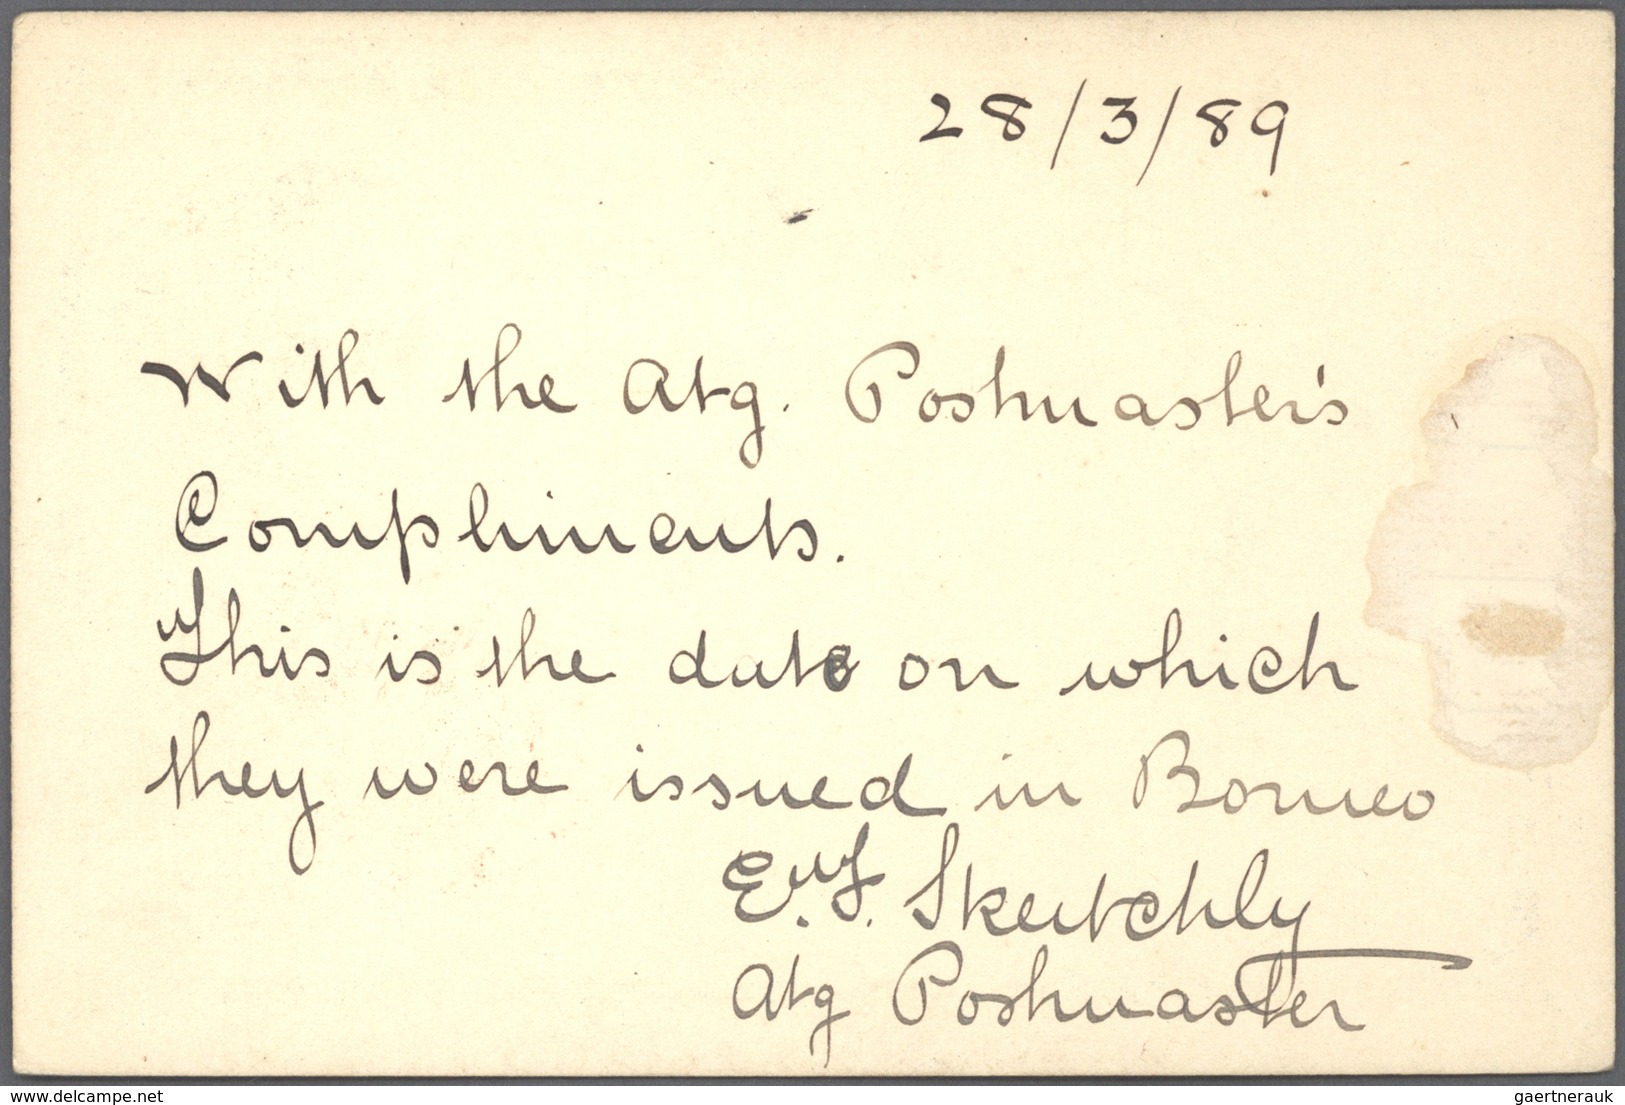 28/3/89
With the Atg. Postmaster's
Compliments.
This is the date on which
they were issued in Borneo
E. T. Skertchly
Atg Postmaster
delcampe.net
gaertnerauk